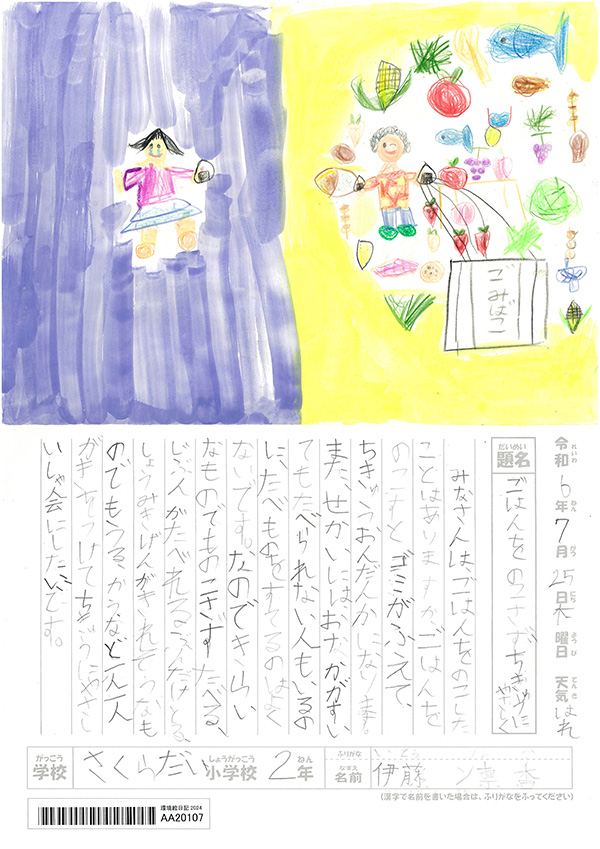 ごみばこ
令和6年7月25日木曜日 天気 はれ
題名 ごはんをのこさずちきゅうにやさしく
みなさんは、ごはんをのこした
ことはありますか。ごはんを
のこすと ゴミがふえて、
ちきゅうおんだんかになります。
また、せかいにはおなかがすい
てもたべられない人もいるの
に、たべものをすてるのは
なのです。なのできらい
なものでものこさずたべる、
じぶんがたべれるぶんだけとる、
しょうみきげんがきれて
のでもうるかうなど一人一人
がきをつけてちきゅうにやさし
いしゃ会にしたいです。
がっこう 学校 さくらだい しょうがっこう 小学校 2年 ふりがな なまえ 名前 伊藤 凜香
(漢字で名前を書いた場合は、ふりがなをふってください)
環境絵日記 2024
AA20107